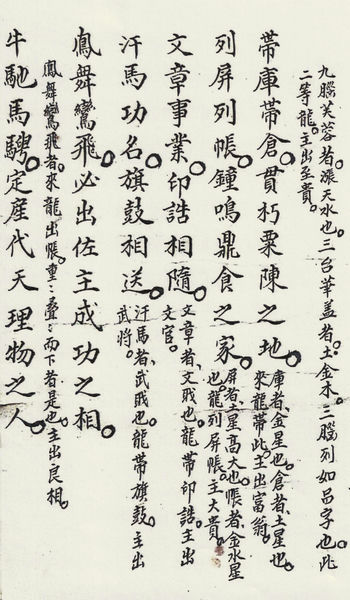 九腦芙蓉者。漲天水也。三台華盖者。土金木。三腦列如品字也。此
二等龍。主出至貴。
帶庫帶倉。貫朽粟陳之地。
庫者、金星也。倉者、土星也。
來龍帶此。主出富翁。
列屏列帳。鐘鳴鼎食之家。
屏者、土星高大也。帳者、金水星
也。龍列屏帳。主大貴。
文章事業。印誥相隨。
文章者、文貴也。龍帶印誥。主出
文官。
汗馬功名。旗鼓相送。
汗馬者、武貴也。龍帶旗鼓。主出
武將。
鳳舞鸞飛。必出佐主成功之相。
鳳舞鸞飛者。來龍出帳。重：叠：而下者是也。主出良相。
牛馳馬騁。定産代天理物之人。